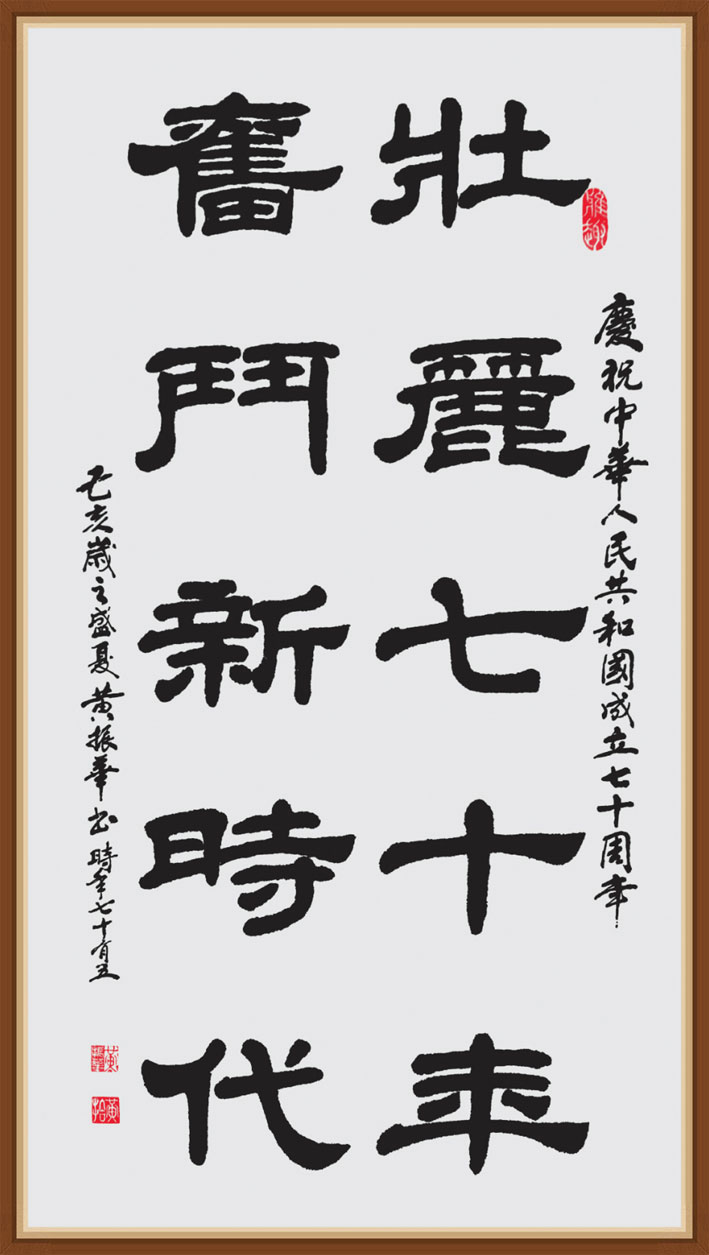 慶祝中華人民共和國成立七十周年
壯麗七十年
奮鬥新時代
己亥歲之盛夏黃振華書時年七十有五
雅趣